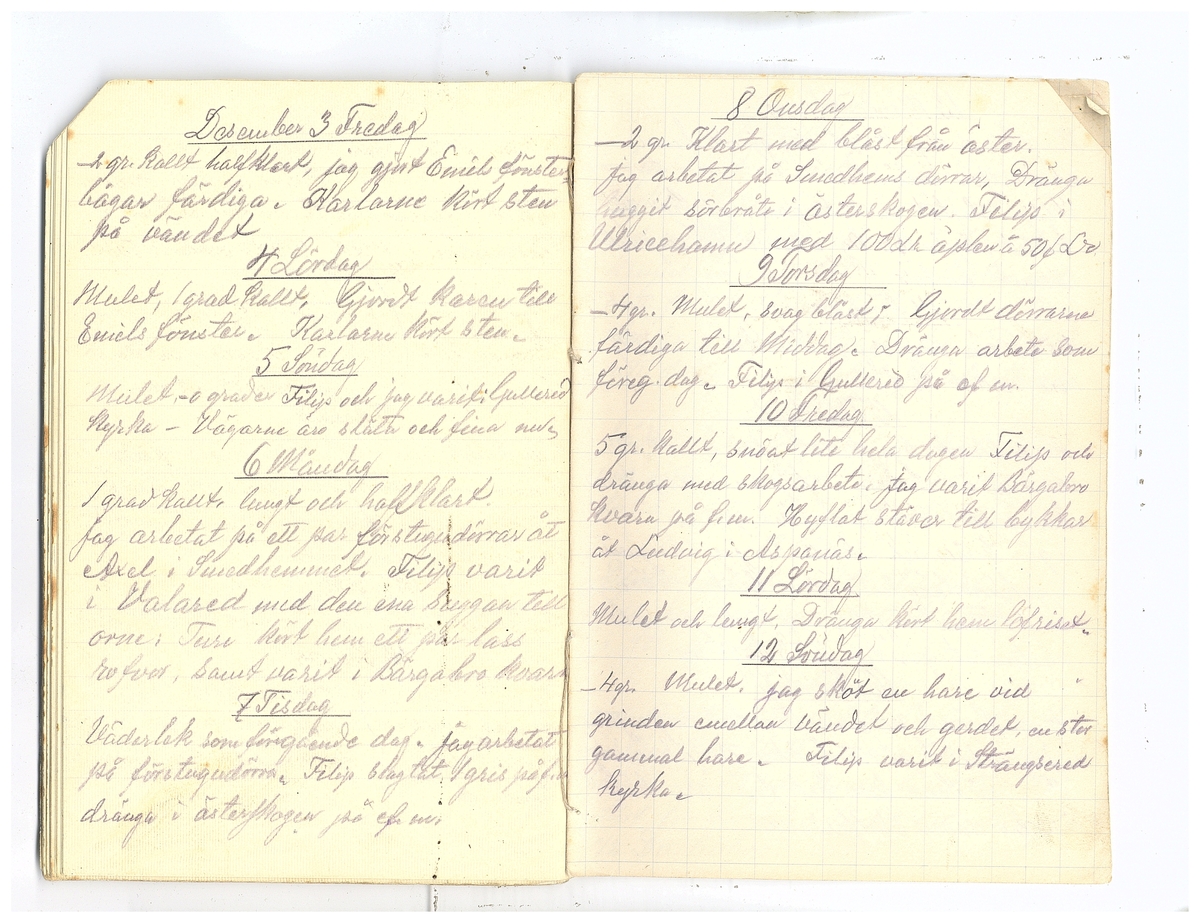 Desember 3 Fredag
-2 gr. kallt halfklart, jag gjort Emils fönster
bågar färdiga. Karlarne kört sten
på vändet
4 Lördag
Mulet, 1 grad kallt, Gjordt karen till
Emils fönster. Karlarne kört sten.
5 Söndag
Mulet, -0 grader Filip och jag varit i Gullered
kyrka - Vägarne äro släta och fina nu.
6 Måndag
1 grad kallt, lungt och halfklart.
Jag arbetat på ett par förstugudörrar åt
Axel i Smedhemmet. Filip varit
i Valared med den ena suggan till
orne. Ture kört hem ett par lass
rofvor, samt varit i Bärgabro kvarn
7 Tisdag
Väderlek som föregående dag. jag arbetat
på förstugudörra. Filip slagtat 1 gris på f.m
dränga i österskogen på ef. m.
8 Onsdag
-2 gr. Klart med blåst från öster.
Jag arbetat på Smedhems dörrar, Dränga
huggit i österskogen. Filip i
Ulricehamn med 100 äplen à 50
9 Torsdag
-4 gr. Mulet, svag blåst; Gjordt dörrarne
färdiga till Middag. Dränga arbete som
föreg. dag. Filip i Gullered på ef m.
10 Fredag
5 gr. kallt, snöat lite hela dagen Filip och
dränga med skogsarbete. jag varit Bärgabro
kvarn på f.m. Hyflat stäver till bykkar
åt Ludvig i Aspanäs.
11 Lördag
Mulet och lungt, Dränga kört hem löfriset.
12 Söndag
-4 gr. Mulet. jag sköt en hare vid
grinden emellan vändet och gerdet, en stor
gammal hare. Filip varit i Strängsered
kyrka.